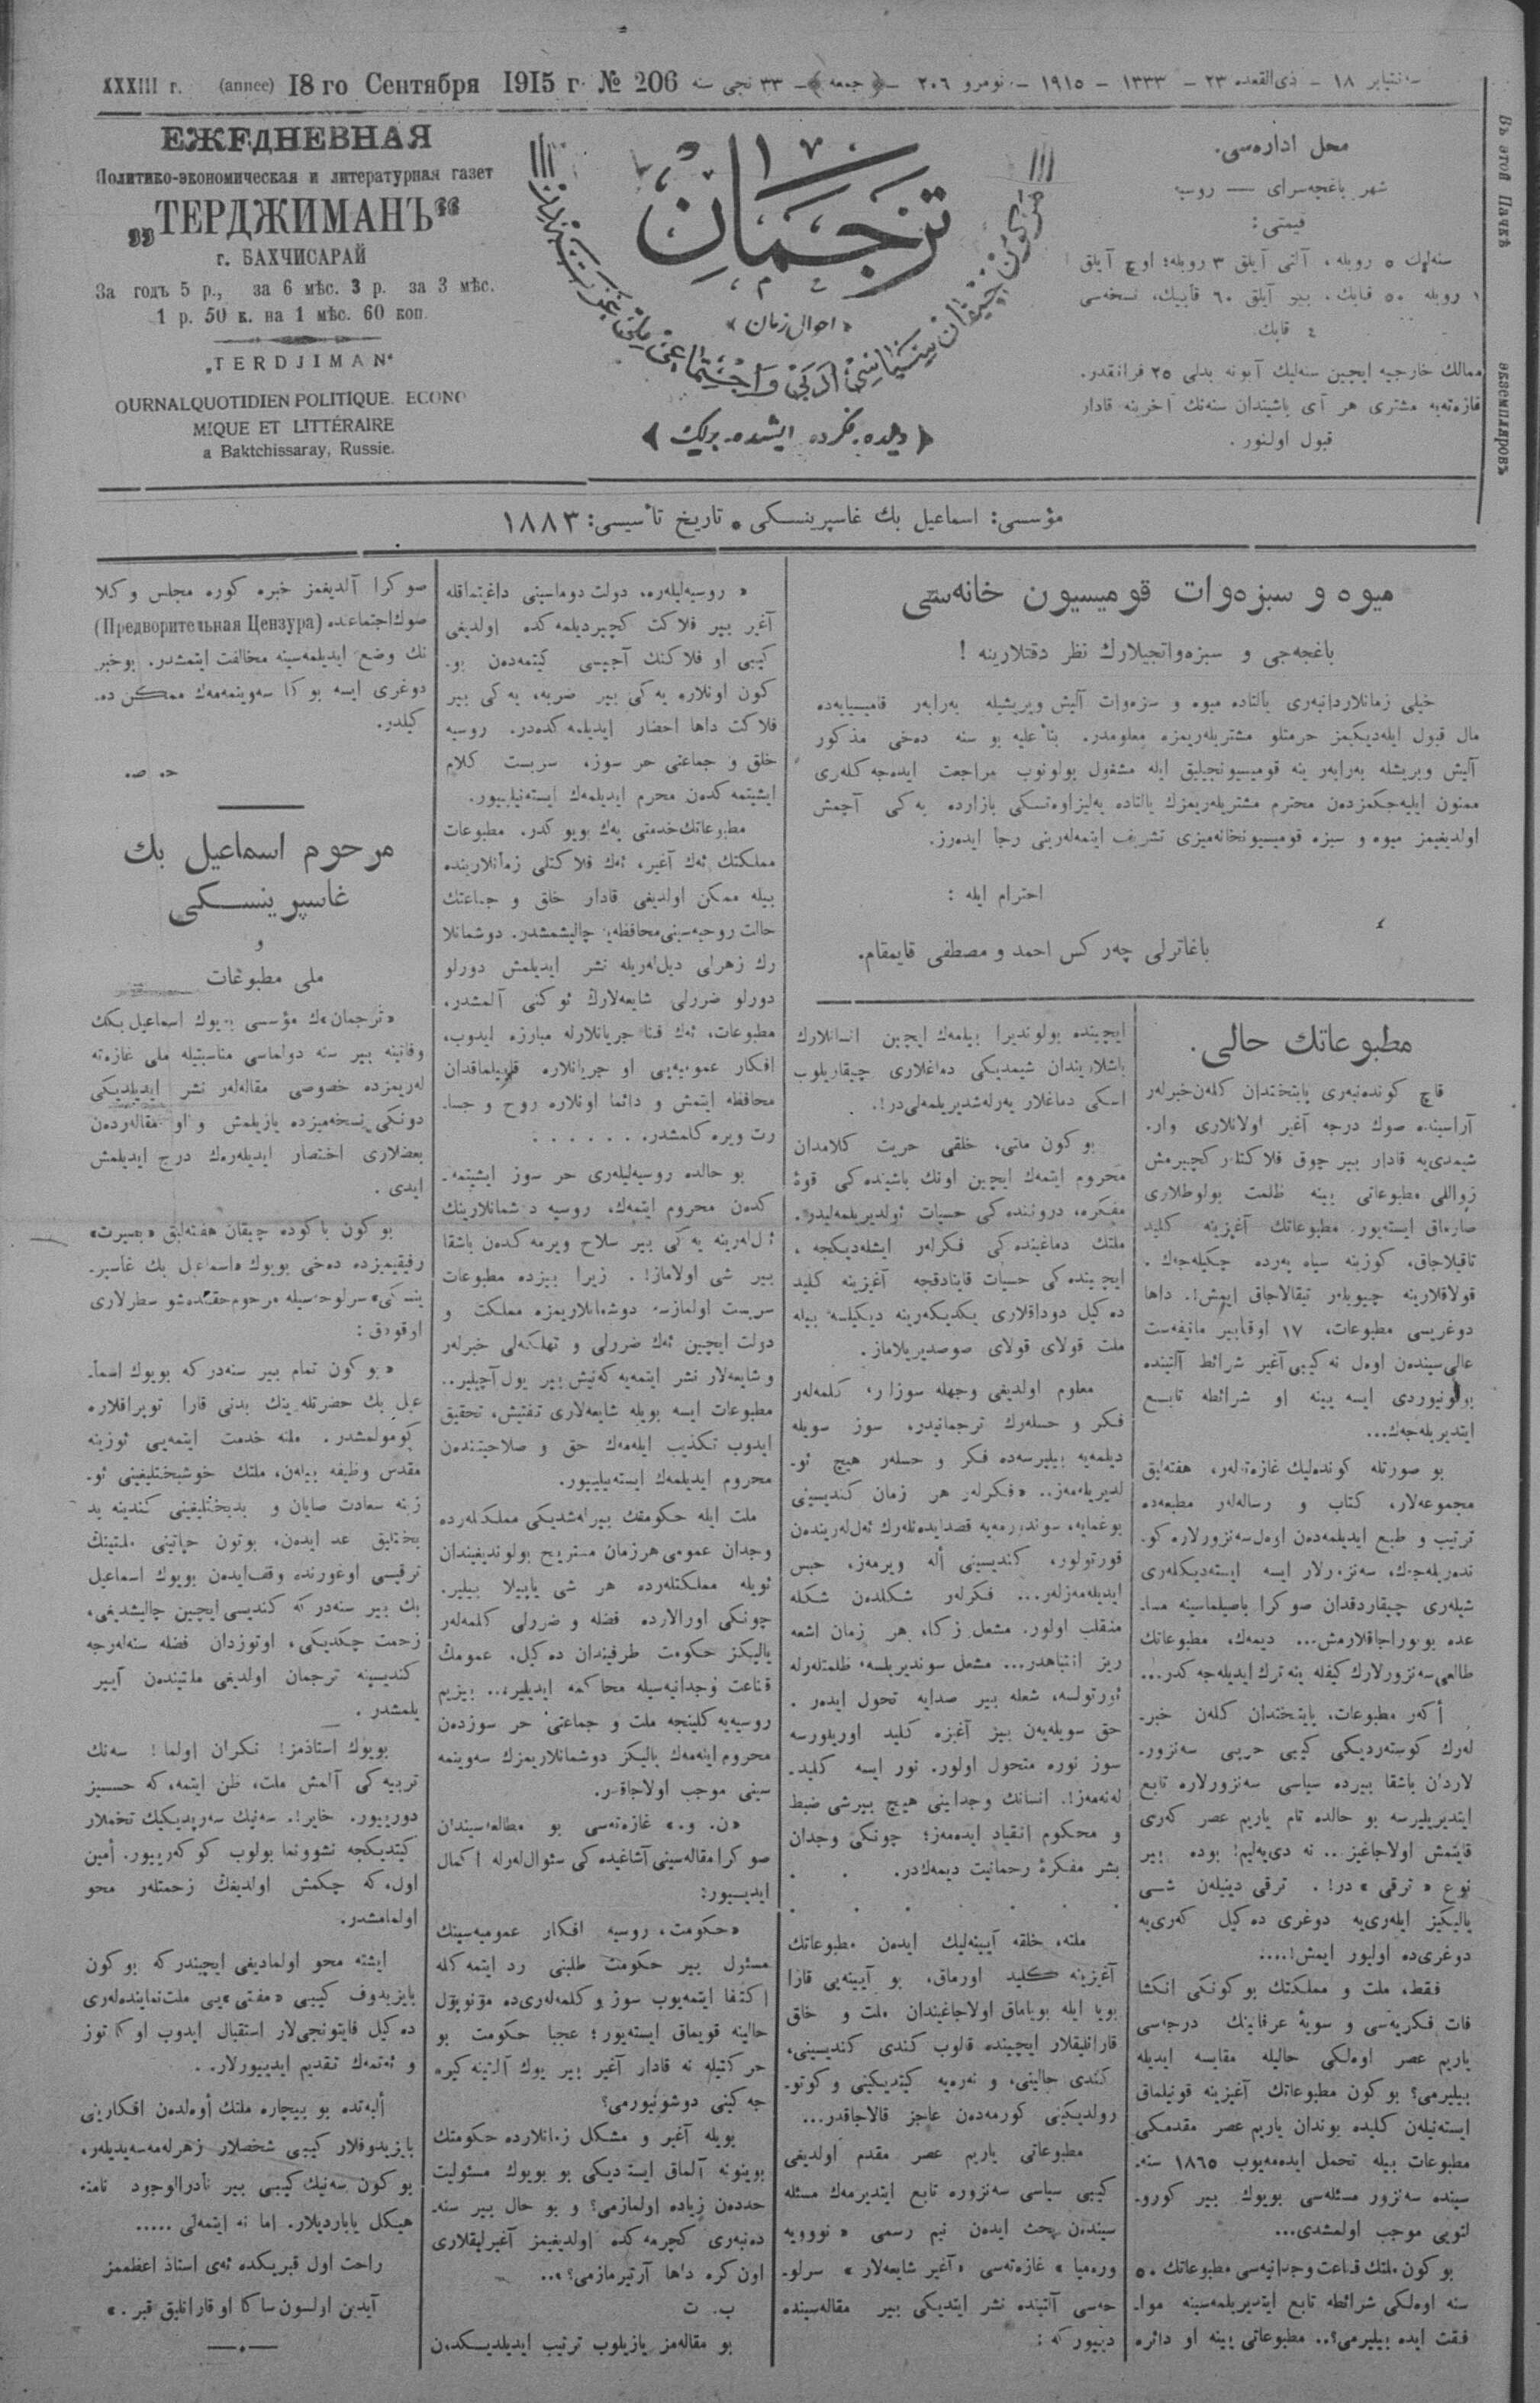 XXXIII г. (annee) 18 го Сентября 1915 г. № 206 ٣٣ نجی سنه -﴿جمعه﴾- نومرو ٢٠٦ - ١٩١٥ - ١٣٣٣ - ذی‌القعده ٢٣ - ١٨
ЕЖЕДНЕВНАЯ
Политико-экономическая и литературная газет
„ТЕРДЖИМАНЪ“
г. БАХЧИСАРАЙ
За годъ 5 р., за 6 мѣс. 3 р. за 3 мѣс.
1 р. 50 к. на 1 мѣс. 60 коп.
„TERDJIMAN“
OURNAL QUOTIDIEN POLITIQUE. ECONO
MIQUE ET LITTÉRAIRE
a Baktchissaray, Russie.
ترجمان
«احوال زمان»
﴿دیلده، فكرده، ایشده، برلك﴾
محل اداره‌سی.
شهر باغچه‌سرای — روسیه
قیمتی:
سنه‌لك ٥ روبله، آلتی آیلق ٣ روبله؛ اوچ آیلق
١ روبله ٥٠ قاپك، بیر آیلق ٦٠ قاپیك، نسخه‌سی
٤ قاپك.
ممالك خارجیه ایچین سنه‌لیك آبونه بدلی ٢٥ فرانقدر.
غازه‌ته‌یه مشتری هر آی باشیندان سنه‌نك آخرینه قادار
قبول اولنور.
Въ этой Пачкѣ экземпляровъ
مؤسسی: اسماعیل بك غاسپرینسكی • تاریخ تأسیسی: ١٨٨٣
میوه و سبزه‌وات قومیسیون خانه‌سی
باغچه‌جی و سبزه‌واتجیلارك نظر دقتلارینه !
خیلی زمانلاردانبه‌ری یالتاده میوه و سزه‌وات آلیش ویریشیله به‌رابه‌ر قامیسیایه‌ده
مال قبول ایله‌دیكیمز حرمتلو مشتریله‌ریمزه معلومدر. بناءً علیه بو سنه ده‌خی مذكور
آلیش ویریشله به‌رابه‌ر ینه قومیسیونجیلیق ایله مشغول بولونوب مراجعت ایده‌جه‌كله‌ری
ممنون ایلیه‌جكمزدن محترم مشتریله‌ریمزك یالتاده یه‌لیزاوه‌تسكی بازارده یه‌كی آچمش
اولدیغیمز میوه و سبزه قومیسیونخانه‌میزی تشریف ایتمه‌له‌رینی رجا ایده‌رز.
احترام ایله :
باغاترلی چه‌ركس احمد و مصطفی قایمقام.
مطبوعاتك حالی.
قاچ كونده‌نبه‌ری پایتختدان كلن خبرله‌ر
آراسینده صوك درجه آغیر اولانلاری وار.
شیمدی‌یه قادار بیر چوق فلاكتلر كچیرمش
زواللی مطبوعاتی یینه ظلمت بولوطلاری
صارماق ایسته‌یور. مطبوعاتك آغزینه كلید
تاقیلاجاق، كوزینه سیاه په‌رده چكیله‌جك.
قولاقلارینه چیویلر تیقالاجاق ایمش!. داها
دوغریسی مطبوعات، ١٧ اوقتابیر مانیفه‌ست
عالی‌سیندن اول نه كیبی آغیر شرائط آلتینده
بولونیوردی ایسه یینه او شرائطه تابع
ایتدیریله‌جه‌ك...
بو صورتله كونده‌لیك غازه‌ته‌له‌ر، هفته‌لیق
مجموعه‌لار، كتاب و رساله‌له‌ر مطبعه‌ده
ترتیب و طبع ایدیلمه‌دن اول سه‌نزورلاره كو-
نده‌ریله‌جك، سه‌نزورلار ایسه ایسته‌دیكله‌ری
شیله‌ری چیقاردقدان صوكرا باصیلماسینه مسا-
عده بویوراجاقلارمش... دیمه‌ك، مطبوعاتك
طالعی سه‌نزورلارك كیفله ینه ترك ایدیله‌جه‌كدر...
أكه‌ر مطبوعات، پایتختدان كلن خبر-
له‌رك كوسته‌ردیكی كیبی حربی سه‌نزور-
لاردان باشقا بیرده سیاسی سه‌نزورلاره تابع
ایتدیریلیرسه بو حالده تام یاریم عصر كه‌ری
قایتمش اولاجاغیز... نه دی‌یه‌لیم! بوده بیر
نوع «ترقی» در!. ترقی دینیلن شی
یالیكیز ایله‌ری‌یه دوغری ده‌كیل كه‌ری‌یه
دوغری‌ده اولیور ایمش!...
فقط، ملت و مملكتك بو كونكی انكشا
فات فكریه‌سی و سویهٔ عرفانینك درجه‌سی
یاریم عصر اولكی حالیله مقایسه ایدیله
بیلیرمی؟ بو كون مطبوعاتك آغیزینه قونیلماق
ایسته‌نیلن كلیده بوندان یاریم عصر مقدمكی
مطبوعات بیله تحمل ایده‌مه‌یوب ١٨٦٥ سنه-
سینده سه‌نزور مسئله‌سی بویوك بیر كورو-
لتویی موجب اولمشدی...
بو كون ملتك قناعت وجدانیه‌سی مطبوعاتك ٥٠
سنه اوه‌لكی شرائطه تابع ایتدیریلمه‌سینه موا-
فقت ایده بیلیرمی؟.. مطبوعاتی یینه او دائره
ایچینده بولوندیرا بیلمه‌ك ایچین انسانلارك
باشلاریندان شیمدیكی دماغلاری چیقاریلوب
اسكی دماغلار یه‌رله‌شدیریلمه‌لی‌در!.
بو كون ملتی، خلقی حریت كلامدان
محروم ایتمه‌ك ایچین اونك باشینده‌كی قوهٔ
مفكره، دروننده‌كی حسیات ئولدیریلمه‌لیدر.
ملتك دماغینده‌كی فكرله‌ر ایشله‌دیكجه،
ایچینده‌كی حسیات قاینادقجه آغیزینه كلید
ده‌كیل دوداقلاری یكدیكه‌رینه دیكیلسه بیله
ملت قولای قولای صوصدیریلاماز.
معلوم اولدیغی وجهله سوزلر، كلمه‌له‌ر
فكر و حسله‌رك ترجمانیدر. سوز سویله
دیلمه‌یه بیلیرسه‌ده فكر و حسله‌ر هیچ ئو-
لدیریله‌مه‌ز.. «فكرله‌ر هر زمان كندیسینی
بوغمایه، سوندیرمه‌یه قصدایده‌نله‌رك ئه‌لله‌ریندن
قورتولور، كندیسینی أله ویرمه‌ز، حبس
ایدیله‌مه‌زله‌ر... فكرله‌ر شكلدن شكله
منقلب اولور. مشعل زكا، هر زمان اشعه
ریز انتباهدر... مشعل سوندیریلسه، ظلمتله‌رله
ئورتولسه، شعله بیر صدایه تحول ایده‌ر.
حق سویله‌یه‌ن بیر آغیزه كلید اوریلورسه
سوز نوره متحول اولور. نور ایسه كلید-
له‌نه‌مه‌ز!. انسانك وجداینی هیچ بیرشی ضبط
و محكوم انقیاد ایده‌مه‌ز؛ چونكی وجدان
بشر مفكرهٔ رحمانیت دیمه‌كدر.
ملته، خلقه آیینه‌لیك ایدن مطبوعاتك
آغیزینه كلید اورماق، بو آیینه‌یی قارا
بویا ایله بویاماق اولاجاغیندان ملت و خلق
قارانلیقلار ایچینده قالوب كندی كندیسینی،
كندی حالینی، و نه‌ره‌یه كیتدیكینی و كوتو-
رولدیكینی كورمه‌دن عاجز قالاجاقدر...
مطبوعاتی یاریم عصر مقدم اولدیغی
كیبی سیاسی سه‌نزوره تابع ایتدیرمه‌ك مسئله
سیندن بحث ایدن نیم رسمی «نوویه
وره‌میا» غازه‌ته‌سی «آغیر شایعه‌لار» سرلو-
حه‌سی آلتینده نشر ایتدیكی بیر مقاله‌سینده
دییور كه:
« روسیه‌لیله‌ره، دولت دوماسینی داغیتماقله
آغیر بیر فلاكت كچیردیلمه‌كده اولدیغی
كیبی او فلاكتك آجیسی كیتمه‌دن بو-
كون اونلاره یه‌كی بیر ضربه، یه‌كی بیر
فلاكت داها احضار ایدیلمه‌كده‌در. روسیه
خلق و جماعتی حر سوز، سربست كلام
ایشیتمه‌كدن محرم ایدیلمه‌ك ایسته‌نیلییور.
مطبوعاتك خدمتی په‌ك بویوكدر. مطبوعات
مملكتك ئه‌ك آغیر، ئه‌ك فلاكتلی زمانلارینده
بیله ممكن اولدیغی قادار خلق و جماعتك
حالت روحیه‌سینی محافظه‌یه چالیشمشدر. دوشمانلا
رك زهرلی دیلله‌ریله نشر ایدیلمش دورلو
دورلو ضررلی شایعه‌لارك ئوكنی آلمشدر.
مطبوعات، ئه‌ك فنا جریانلارله مبارزه ایدوب،
افكار عمومیه‌یی او جریانلاره قاپیلماقدان
محافظه ایتمش و دائما اونلاره روح و جسا-
رت ویره كلمشدر. . . . . . .
بو حالده روسیه‌لیله‌ری حر سوز ایشیتمه-
كدن محروم ایتمه‌ك، روسیه دشمانلارینك
ئه‌لله‌رینه یه‌كی بیر سلاح ویرمه‌كدن باشقا
بیر شی اولاماز!. زیرا بیزده مطبوعات
سربست اولمازسه دوشمانلاریمزه مملكت و
دولت ایچین ئه‌ك ضررلی و تهلكه‌لی خبرله‌ر
و شایعه‌لار نشر ایتمه‌یه كه‌نیش بیر یول آچیلیر..
مطبوعات ایسه بویله شایعه‌لاری تفتیش، تحقیق
ایدوب تكذیب ایله‌مه‌ك حق و صلاحیتندن
محروم ایدیلمه‌ك ایسته‌نیلییور.
ملت ایله حكومتك بیرله‌شدیكی مملكتله‌رده
وجدان عمومی هرزمان مستریح بولوندیغیندان
ئویله مملكتله‌رده هر شی یاپیلا بیلیر.
چونكی اورالارده فضله و ضررلی كلمه‌له‌ر
یالیكز حكومت طرفیندان ده‌كیل، عمومك
قناعت وجدانیه‌سیله محاكمه ایدیلیر... بیزیم
روسیه‌یه كلینجه ملت و جماعتی حر سوزدن
محروم ایتمه‌ك یالیكز دوشمانلاریمزك سه‌وینمه
سینی موجب اولاجاقدر.
«ن. و.» غازه‌ته‌سی بو مطالعه‌سیندان
صوكرا مقاله‌سینی آشاغیده‌كی سئوال‌له‌رله اكمال
ایدییور:
«حكومت، روسیه افكار عمومیه‌سینك
مسئول بیر حكومت طلبنی رد ایتمه‌كله
اكتفا ایتمه‌یوب سوز و كلمه‌له‌ری‌ده مونوپول
حالینه قویماق ایسته‌یور؛ عجبا حكومت بو
حركتیله نه قادار آغیر بیر یوك آلتینه كیره
جه‌كینی دوشونیورمی؟
بویله آغیر و مشكل زمانلارده حكومتك
بوینونه آلماق ایستدیكی بو بویوك مسئولیت
حددن زیاده اولمازمی؟ و بو حال بیر سنه-
ده‌نبه‌ری كچرمه‌كده اولدیغیمز آغیرلیقلاری
اون كره داها آرتیرمازمی؟...
ب. ت
بو مقاله‌مز یازیلوب ترتیب ایدیلدیكدن
صوكرا آلدیغمز خبره كوره مجلس وكلا
صوك اجتماعنده (Предворительная Цензура)
نك وضع ایدیلمه‌سینه مخالفت ایتمشدر. بوخبر
دوغری ایسه بوكا سه‌وینمه‌مه‌ك ممكن ده-
كیلدر.
ح. ص.
مرحوم اسماعیل بك
غاسپرینسكی
و
ملی مطبوعات
«ترجمان»ك مؤسسی بویوك اسماعیل بكك
وفاتینه بیر سنه دولماسی مناسبتیله ملی غازه‌ته
له‌ریمزده خصوصی مقاله‌له‌ر نشر ایدیلدیكی
دونكی نسخه‌میزده یازیلمش و او مقاله‌ردن
بعضلاری اختصار ایدیله‌ره‌ك درج ایدیلمش
ایدی.
بو كون باكوده چیقان هفته‌لیق «بصیرت»
رفیقیمیزده ده‌خی بویوك «اسماعیل بك غاسپر-
ینسكی» سرلوحه‌سیله مرحوم حقنده شو سطرلاری
اوقودق:
«بو كون تمام بیر سنه‌در كه بویوك اسما-
عیل بك حضرتله‌رینك بدنی قارا توپراقلاره
كومولمشدر. ملته خدمت ایتمه‌یی ئوزینه
مقدس وظیفه بیلن، ملتك خوشبختلیغینی ئو-
زینه سعادت صایان و بدبختلیغینی كندینه بد
بختلیق عد ایدن، بوتون حیاتینی ملتینك
ترقیسی اوغورنده وقف‌ایدن بویوك اسماعیل
بك بیر سنه‌در كه كندیسی ایچین چالیشدیغی،
زحمت چكدیكی، اوتوزدان فضله سنه‌له‌رجه
كندیسینه ترجمان اولدیغی ملتیندن آییر
یلمشدر.
بویوك استاذمز! نكران اولما! سه‌نك
تربیه‌كی آلمش ملت، ظن ایتمه، كه حسسیز
دورییور. خایر!. سه‌نیك سه‌رپدیكیك تخملار
كیتدیكجه نشوونما بولوب كوكه‌رییور. أمین
اول، كه چكمش اولدیغك زحمتله‌ر محو
اولمامشدر.
ایشته محو اولمادیغی ایچیندر كه بو كون
بایزیدوف كیبی «مفتی»یی ملت نماینده‌له‌ری
ده‌كیل فایتونجی‌لار استقبال ایدوب اوكا توز
و ئه‌تمه‌ك تقدیم ایدییورلار.
ألبه‌تده بو بیچاره ملتك أوه‌لدن افكارینی
بایزیدوفلار كیبی شخصلار زهرله‌مه‌سه‌یدیله‌ر،
بو كون سه‌نیك كیبی بیر نادرالوجود نامنه
هیكل یاپاردیلار. اما نه ایتمه‌لی .....
راحت اول قبریكده ئه‌ی استاذ اعظممز
آیدین اولسون ساكا او قارانلیق قبر.»